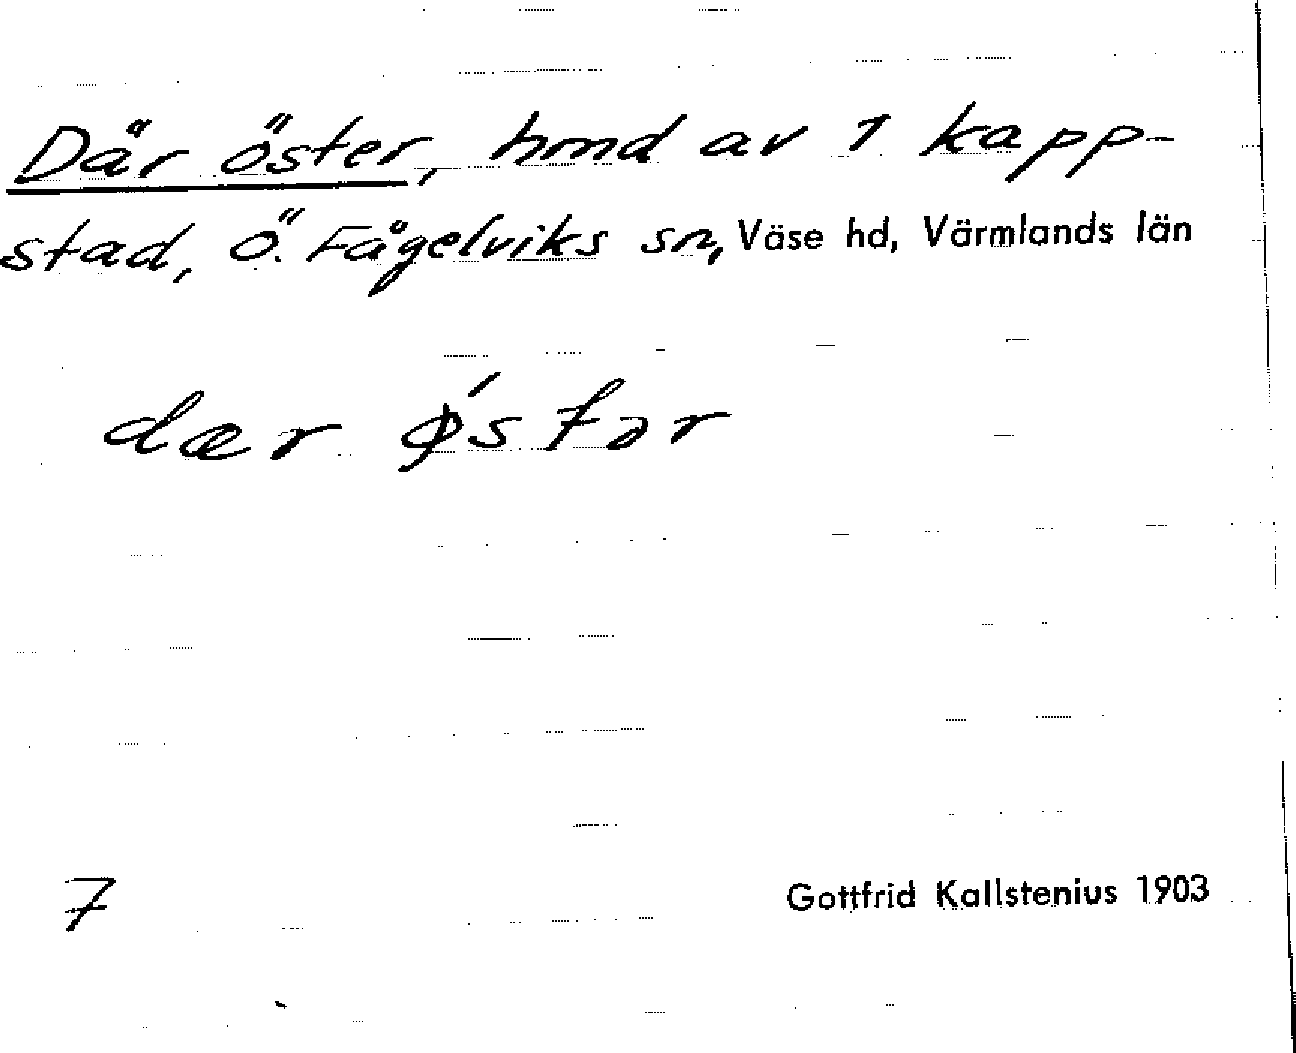 Där öster, hmd av 1 kapp-
stad, Ö. Fågelviks sn, Väse hd, Värmlands län
dær ǿstər
7
Gottfrid Kallstenius 1903